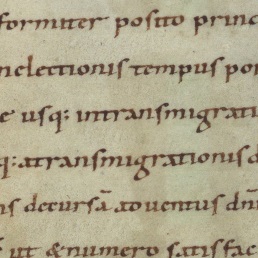 formiter posito princ
nelectionis tempus por
e usq: intransmigrati
q: atransmigrationis d
is decursā aduentus dn̄i
ut & numero satisfac